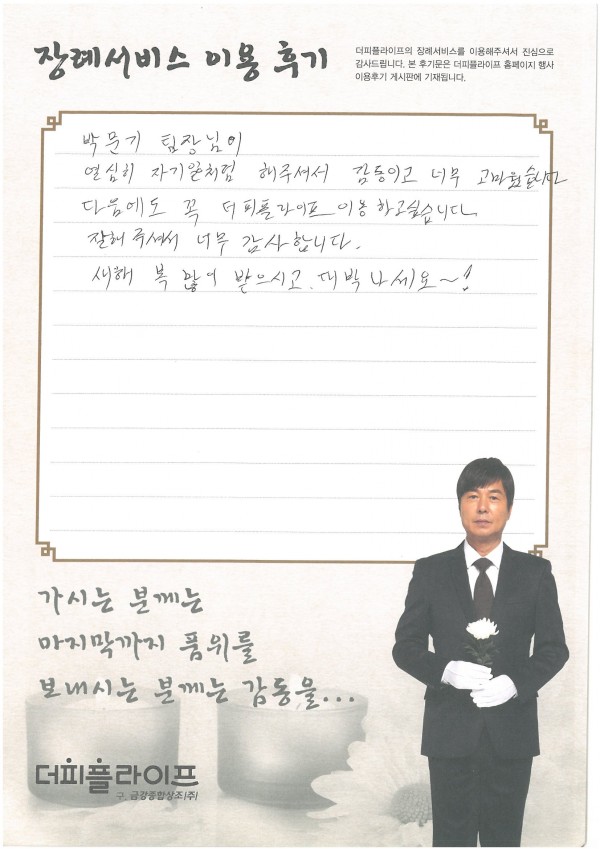 장례서비스 이용 후기
더피플라이프의 장례서비스를 이용해주셔서 진심으로
감사드립니다. 본 후기문은 더피플라이프 홈페이지 행사
이용후기 게시판에 기재됩니다.
박문기 팀장님이
열심히 자기일처럼 해주셔서 감동이고 너무 고마웠습니다
다음에도 꼭 더피플라이프 이용하고싶습니다
잘해 주셔서 너무 감사합니다.
새해 복 많이 받으시고. 대박나세요~!
가시는 분께는
마지막까지 품위를
보내시는 분께는 감동을...
더피플라이프
구. 금강종합상조(주)